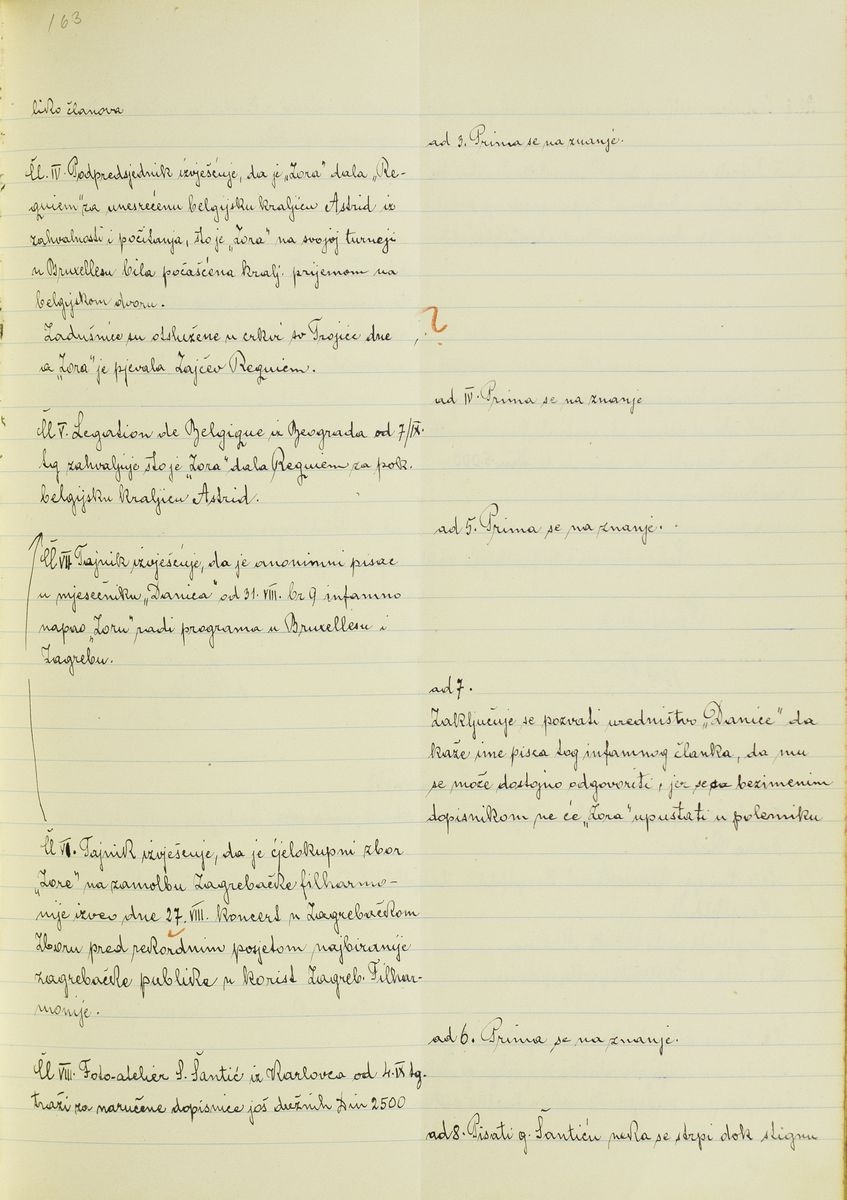 163
liko članova
ad 3. Prima se na znanje.
Čl. IV. Podpredsjednik izvješćuje, da je „Zora" dala „Re-
quiem" za unesrećenu belgijsku kraljicu Astrid iz
zahvalnosti i počitanja, što je „Zora" na svojoj turneji
u Bruxellesu bila počašćena kralj. prijemom na
belgijskom dvoru.
Zadušnice su otslužene u crkvi sv Trojice dne , . ?
a „Zora" je pjevala Zajčev Requiem.
ad IV. Prima se na znanje
Čl V. Legation de Belgique iz Beograda od 7/IX.
tg zahvaljuje što je „Zora" dala Requiem za pok.
belgijsku kraljicu Astrid.
ad 5. Prima se na znanje.
Čl VII Tajnik izvješćuje, da je anonimni pisac
u mjesečniku „Danica" od 31. VIII. br 9 infamno
napao „Zoru" radi programa u Bruxellesu i
Zagrebu.
ad 7.
Zaključuje se pozvati uredništvo „Danice" da
kaže ime pisca tog infamnog članka, da mu
se može dostojno odgovoriti, jer se sa bezimenim
dopisnikom ne će „Zora" upuštati u polemiku
Čl VI. Tajnik izvješćuje, da je cjelokupni zbor
„Zore" na zamolbu Zagrebačke filharmo-
nije izveo dne 27. VIII. koncert u Zagrebačkom
Zboru pred rekordnim posjetom najbiranije
zagrebačke publike u korist Zagreb. Filhar-
monije.
ad 6. Prima se na znanje.
Čl VIII. Foto-atelier S. Šantić iz Karlovca od 4. IX tg.
traži za naručene dopisnice još dužnih Din 2500
ad 8. Pisati g. Šantiću neka se strpi dok stignu